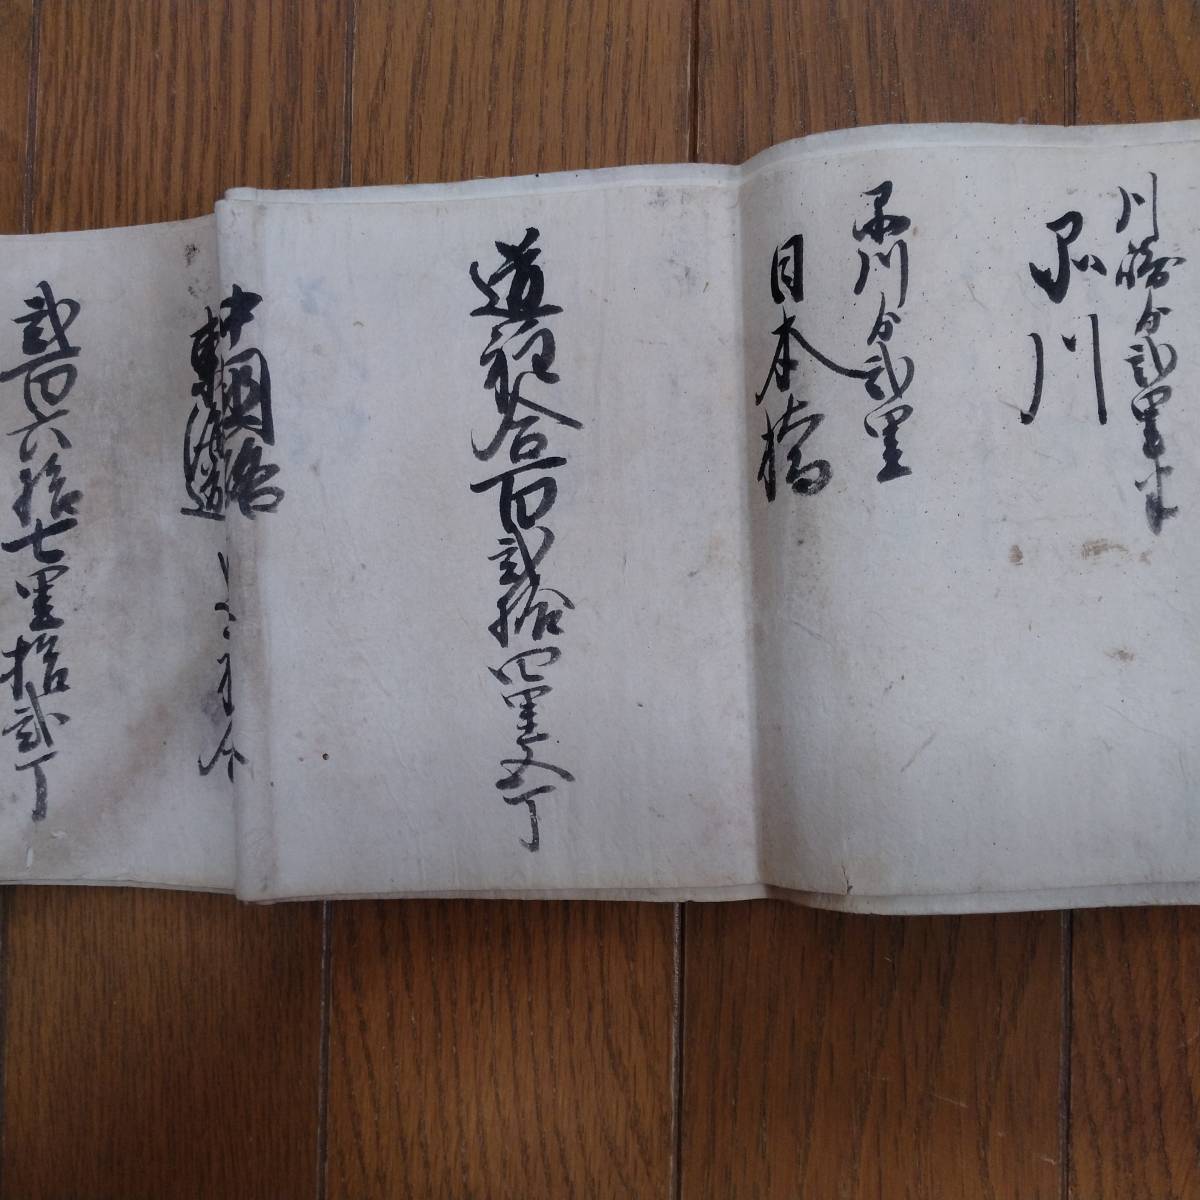 川崎ゟ弐里半
品川
品川ゟ弐里
日本橋
道程合百弐拾四里五丁
中國路
東海道
弐百六拾七里拾弐丁